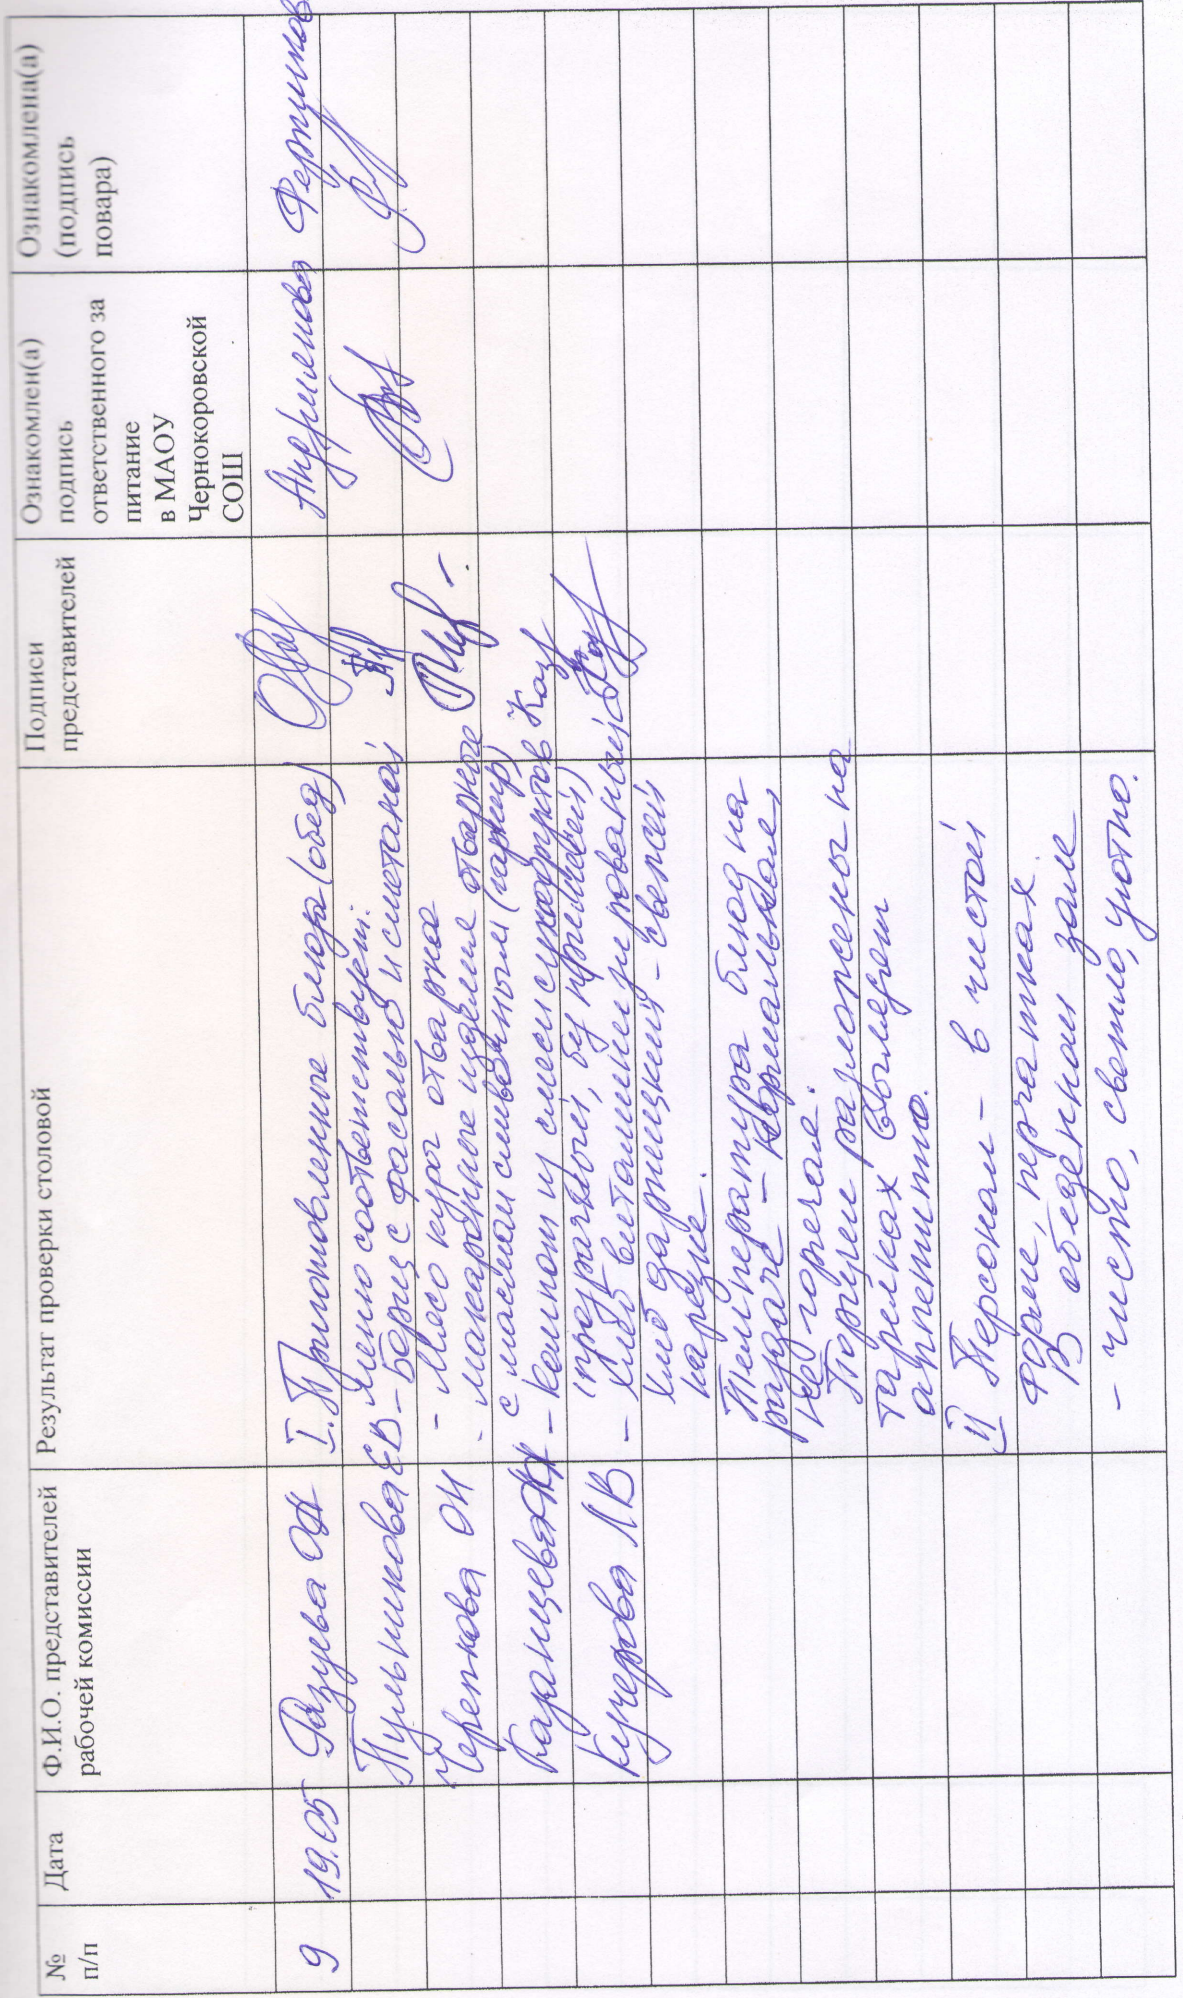 №
п/п
Дата
Ф.И.О. представителей
рабочей комиссии
Результат проверки столовой
Подписи
представителей
Ознакомлен(а)
подпись
ответственного за
питание
в МАОУ
Чернокоровской
СОШ
Ознакомлена(а)
(подпись
повара)
9
19.05
Разуева
Пульникова ЕВ
Черепкова ОН
Казанцева
Кучерова ЛВ
I. Приготовленные блюда (обед)
меню соответствует:
- Борщ с фасолью и сметаной
- Мясо кур отварное
- макаронные изделия отварные
с маслом сливочным (гарнир)
- компот из смеси сухофруктов
(прозрачный, без примесей)
- хлеб витаминизированный
хлеб дарницкий - свежей
нарезке.
Температура блюд на
раздаче - нормальная,
не горячая.
Порции разложены на
тарелках выглядят
аппетитно.
II Персонал - в чистой
форме, перчатках.
В обеденном зале
- чисто, светло, уютно.
Каз